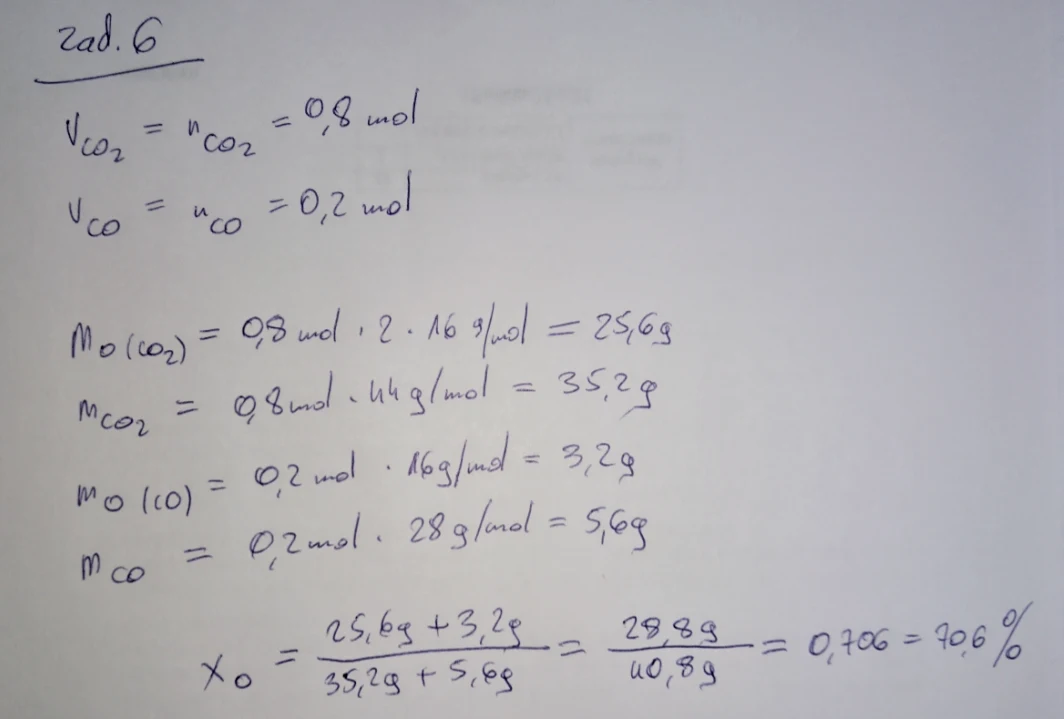 zad. 6
V_CO₂ = n_CO₂ = 0,8 mol
V_CO = n_CO = 0,2 mol
m_O(CO₂) = 0,8 mol · 2 · 16 g/mol = 25,6g
m_CO₂ = 0,8 mol · 44 g/mol = 35,2g
m_O(CO) = 0,2 mol · 16g/mol = 3,2g
m_CO = 0,2 mol · 28 g/mol = 5,6g
x_O = (25,6g + 3,2g)/(35,2g + 5,6g) = 28,8g/40,8g = 0,706 = 70,6%